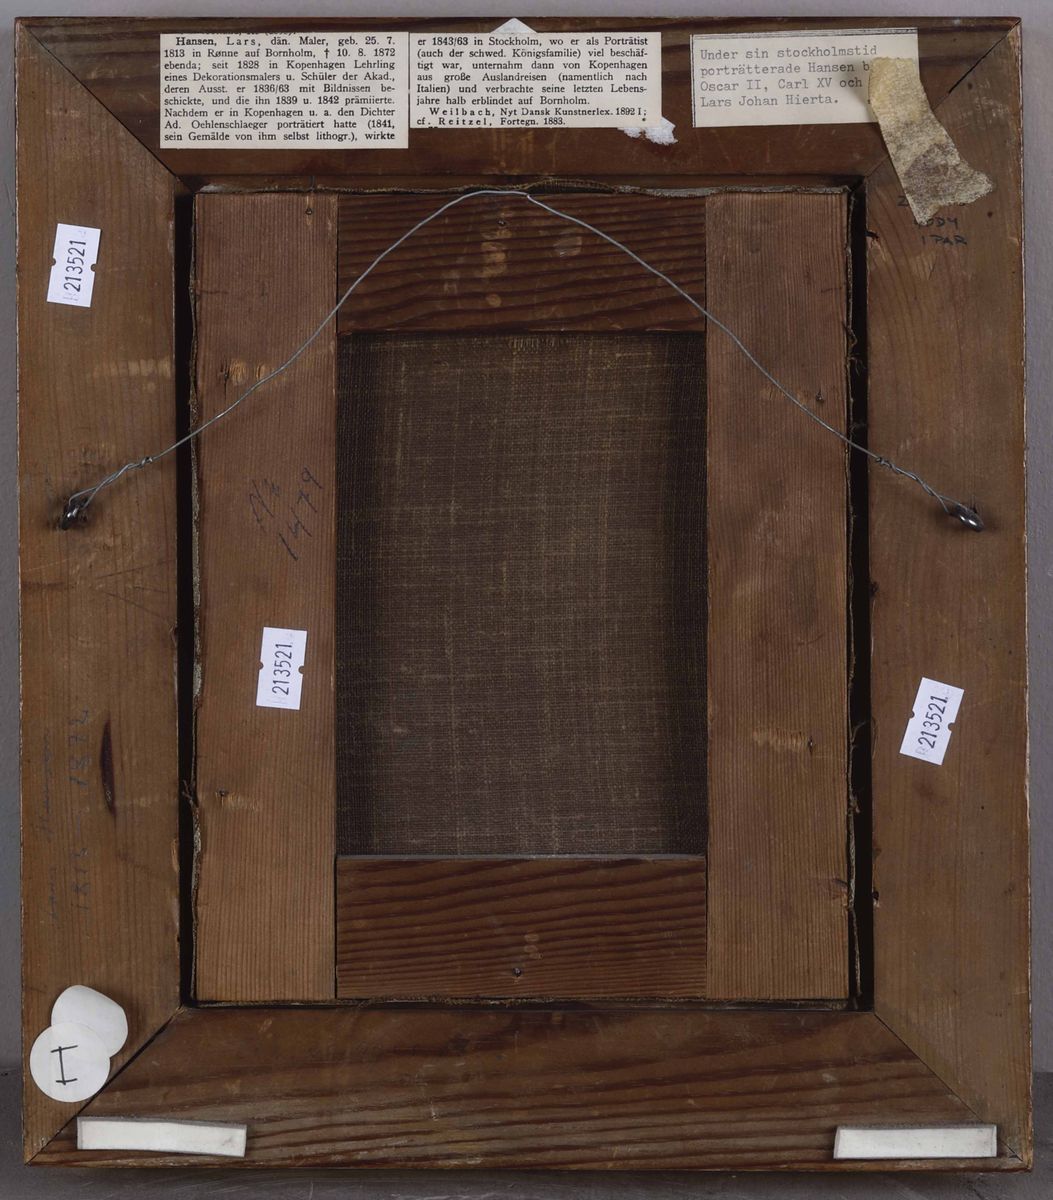 Hansen, Lars, dän. Maler, geb. 25. 7.
1813 in Rønne auf Bornholm, † 10. 8. 1872
ebenda; seit 1828 in Kopenhagen Lehrling
eines Dekorationsmalers u. Schüler der Akad.,
deren Ausst. er 1836/63 mit Bildnissen be-
schickte, und die ihn 1839 u. 1842 prämiierte.
Nachdem er in Kopenhagen u. a. den Dichter
Ad. Oehlenschlaeger porträtiert hatte (1841,
sein Gemälde von ihm selbst lithogr.), wirkte
er 1843/63 in Stockholm, wo er als Porträtist
(auch der schwed. Königsfamilie) viel beschäf-
tigt war, unternahm dann von Kopenhagen
aus große Auslandreisen (namentlich nach
Italien) und verbrachte seine letzten Lebens-
jahre halb erblindet auf Bornholm.
Weilbach, Nyt Dansk Kunstnerlex. 1892 I;
cf. Reitzel, Fortegn. 1883.
Under sin stockholmstid
porträtterade Hansen b
Oscar II, Carl XV och
Lars Johan Hierta.
1 PAR
213521
No
1479
213521
213521
Lars Hansen
1813 – 1872
H